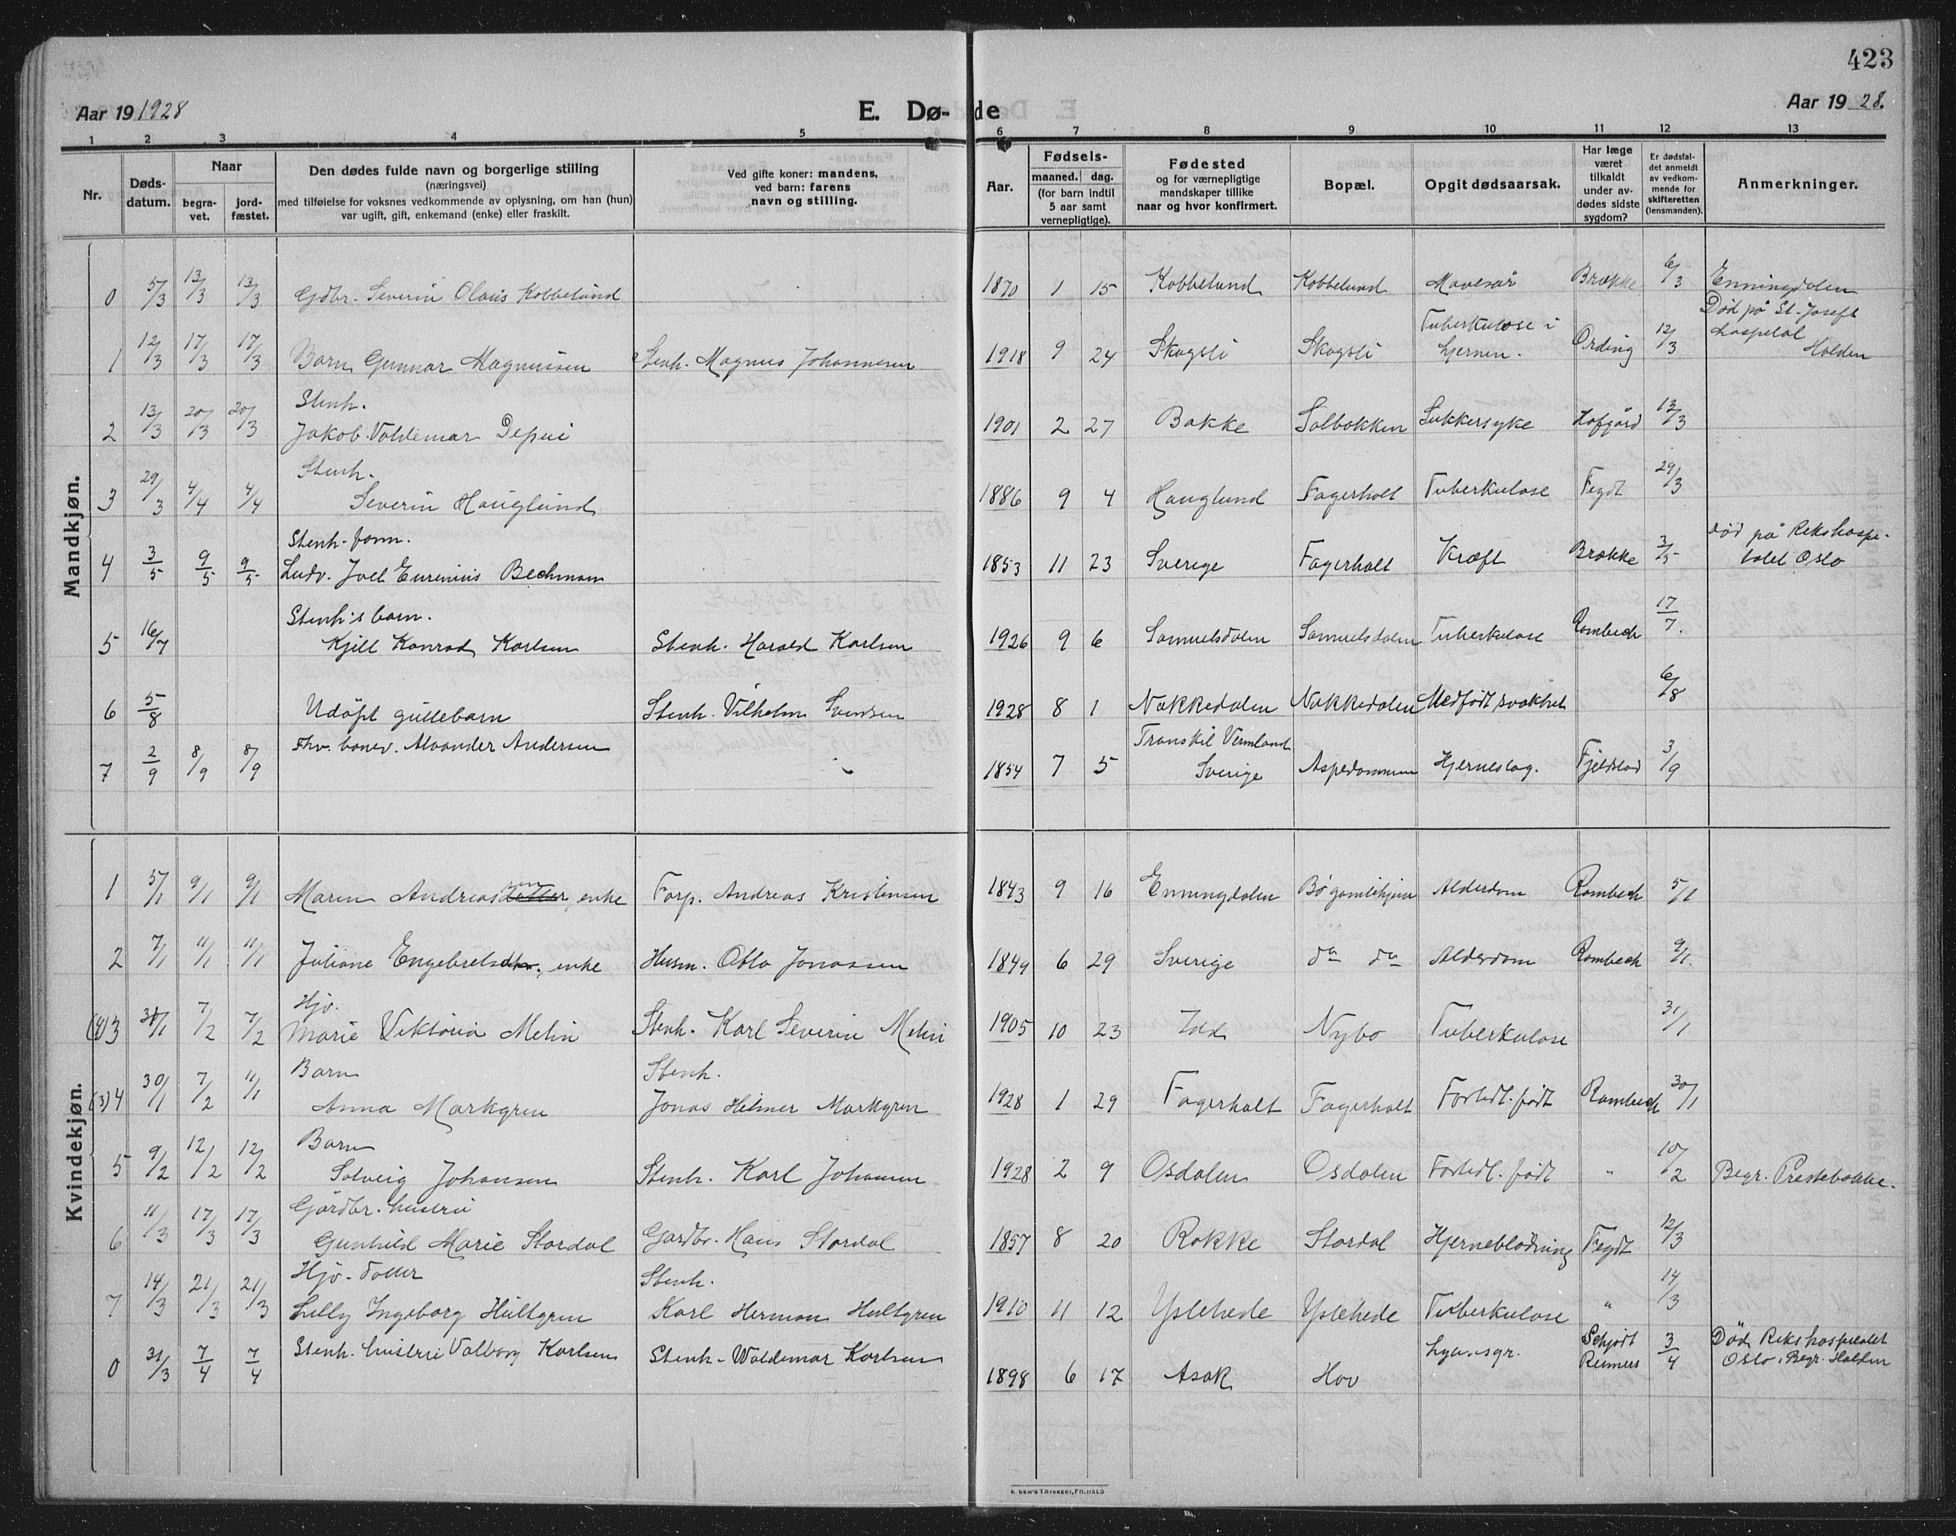 423
Aar 19 1928
E. Dø-de
Aar 19 28.
1 2 3 4 5 6 7 8 9 10 11 12 13
Nr.
Døds-datum.
Naar
begra-vet.
jord-fæstet.
Den dødes fulde navn og borgerlige stilling
(næringsvei)
med tilføielse for voksnes vedkommende av oplysning, om han (hun)
var ugift, gift, enkemand (enke) eller fraskilt.
Ved gifte koner: mandens,
ved barn: farens
navn og stilling.
Aar.
Fødsels-
maaned. dag.
(for barn indtil
5 aar samt
vernepligtige).
Fødested
og for værnepligtige
mandskaper tillike
naar og hvor konfirmert.
Bopæl.
Opgit dødsaarsak.
Har læge
været
tilkaldt
under av-
dødes sidste
sygdom?
Er dødsfal-
det anmeldt
av vedkom-
mende for
skifteretten
(lensmanden).
Anmerkninger.
Mandkjøn.
0 5/3 13/3 13/3 Gdbr. Severin Olaus Kobbelund 1870 1 15 Kobbelund Kobbelund Mavesår Brække 6/3 Enningdalen
1 12/3 17/3 17/3 Barn Gunnar Magnussen Stenh. Magnus Johannesen 1918 9 24 Skogsli Skogsli Tuberkulose i hjernen. Ording 12/3 Død på St. Josefs hospital Halden
2 13/3 20/3 20/3 Stenh. Jakob Valdemar Depui 1901 2 27 Bakke Solbakken Sukkersyke Hofgård 13/3
3 29/3 4/4 4/4 Stenh. Severin Hauglund 1886 9 4 Hauglund Fagerholt Tuberkulose Fegdt 29/3
4 3/5 9/5 9/5 Stenh.-form. Ludv. Joel Eurenius Bechman 1853 11 23 Sverige Fagerholt Kræft Brække 3/5 død på Rikshospitalet Oslo
5 16/7 Stenh's barn. Kjell Konrad Karlsen Stenh. Harald Karlsen 1926 9 6 Samuelsdalen Samuelsdalen Tuberkulose Rambech 17/7.
6 5/8 Udöpt guttebarn Stenh. Vilhelm Svendsen 1928 8 1 Nakkedalen Nakkedalen Medfødt svakhet 6/8
7 2/9 8/9 8/9 Fhv. banev. Alvander Andersen 1854 7 5 Transkil Vermland Sverige Aspedammen Hjerneslag. Fjeldstad 3/9
Kvindekjøn.
1 5/1 9/1 9/1 Maren Andreas datter, enke Forp. Andreas Kristensen 1843 9 16 Enningdalen Bö gamlehjem Alderdom Rambech 5/1
2 7/1 11/1 11/1 Juliane Engebretsdtr., enke Husm. Otto Jonassen 1849 6 29 Sverige do do Alderdom Rambech 9/1.
(4) 3 31/1 7/2 7/2 Hjv. Marie Viktoria Melin Stenh. Karl Severin Melin 1905 10 23 Idd Nybo Tuberkulose 31/1
(3) 4 30/1 7/2 11/1 Barn Anna Markgren Stenh. Jonas Helmer Markgren 1928 1 29 Fagerholt Fagerholt Fortidl. født Rambech 30/1
5 9/2 12/2 12/2 Barn Solveig Johansen Stenh. Karl Johansen 1928 2 9 Osdalen Osdalen Fortidl. født " 10/2 Begr. Prestebakke.
6 11/3 17/3 17/3 Gårdbr. hustru Gunhild Marie Stordal Gardbr. Hans Stordal 1857 8 20 Rokke Stordal Hjerneblødning Fegdt 12/3
7 14/3 21/3 21/3 Hjv. datter Lilly Ingeborg Hultgren Stenh. Karl Herman Hultgren 1910 11 12 Ystehede Ystehede Tuberkulose " 14/3
0 31/3 7/4 7/4 Stenh. hustru Valborg Karlsen Stenh. Waldemar Karlsen 1898 6 17 Asak Hov Schjödt Reimers 3/4 Død Rikshospitalet Oslo. Begr. Halden